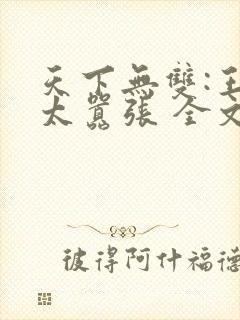 天下無雙:王
太囂張 全文
彼得阿什福德